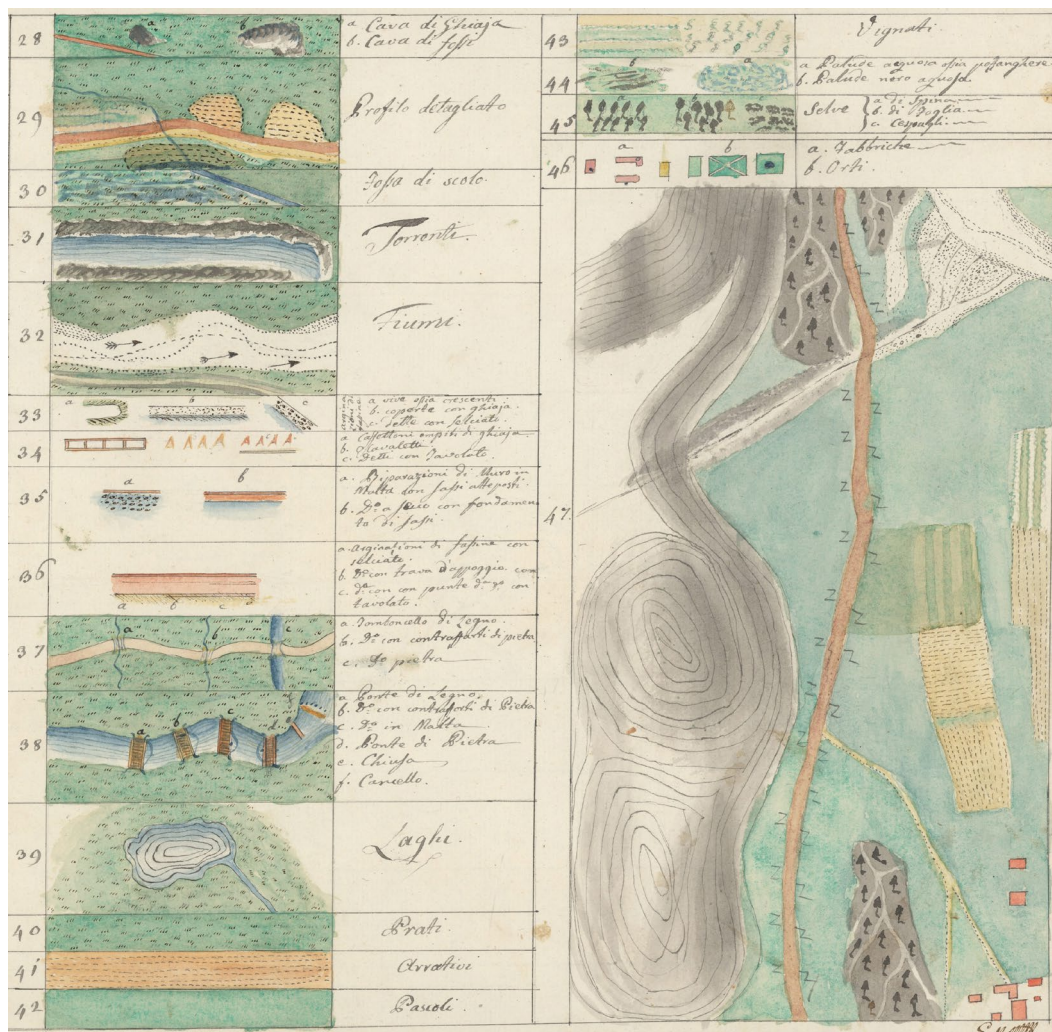 28
a Cava di Ghiaja
b. Cava di Sassi
29
Profilo detagliato
30
Fossa di scolo.
31
Torrenti.
32
Fiumi.
33
a b c
a vive ossia crescenti
b. coperte con ghiaja.
c. dette con selciato.
34
a Cassettoni empiti di ghiaja
b. Cavaletti
c. Detti con Tavolato.
35
a b
a. Riparazioni di Muro in
Malta con sassi
b. Do a secco con fondamen
to di sassi.
36
a b c
a. Arginazioni di fassine con
selciate.
b. Do con trava d'appoggio con
c. do con con punte con
tavolato.
37
a b c
a. Tomboncello di Legno.
b. Do con contrafforti di pietra
c. Do pietra
38
a b c d
a Ponte di Legno.
b. Do con contrafforti di Pietra
c. Do in Malta
d. Ponte di Pietra
e. Chiusa
f. Cancello.
39
Laghi.
40
Prati.
41
Arrativi
42
Pascoli.
43
Vignati.
44
b a
a Palude acquosa ossia
b. Palude non aquosa.
45
Selve
a di Spina
b. di Foglia
c. Cespugli
46
a b
a. Fabbriche
b. Orti.
47.